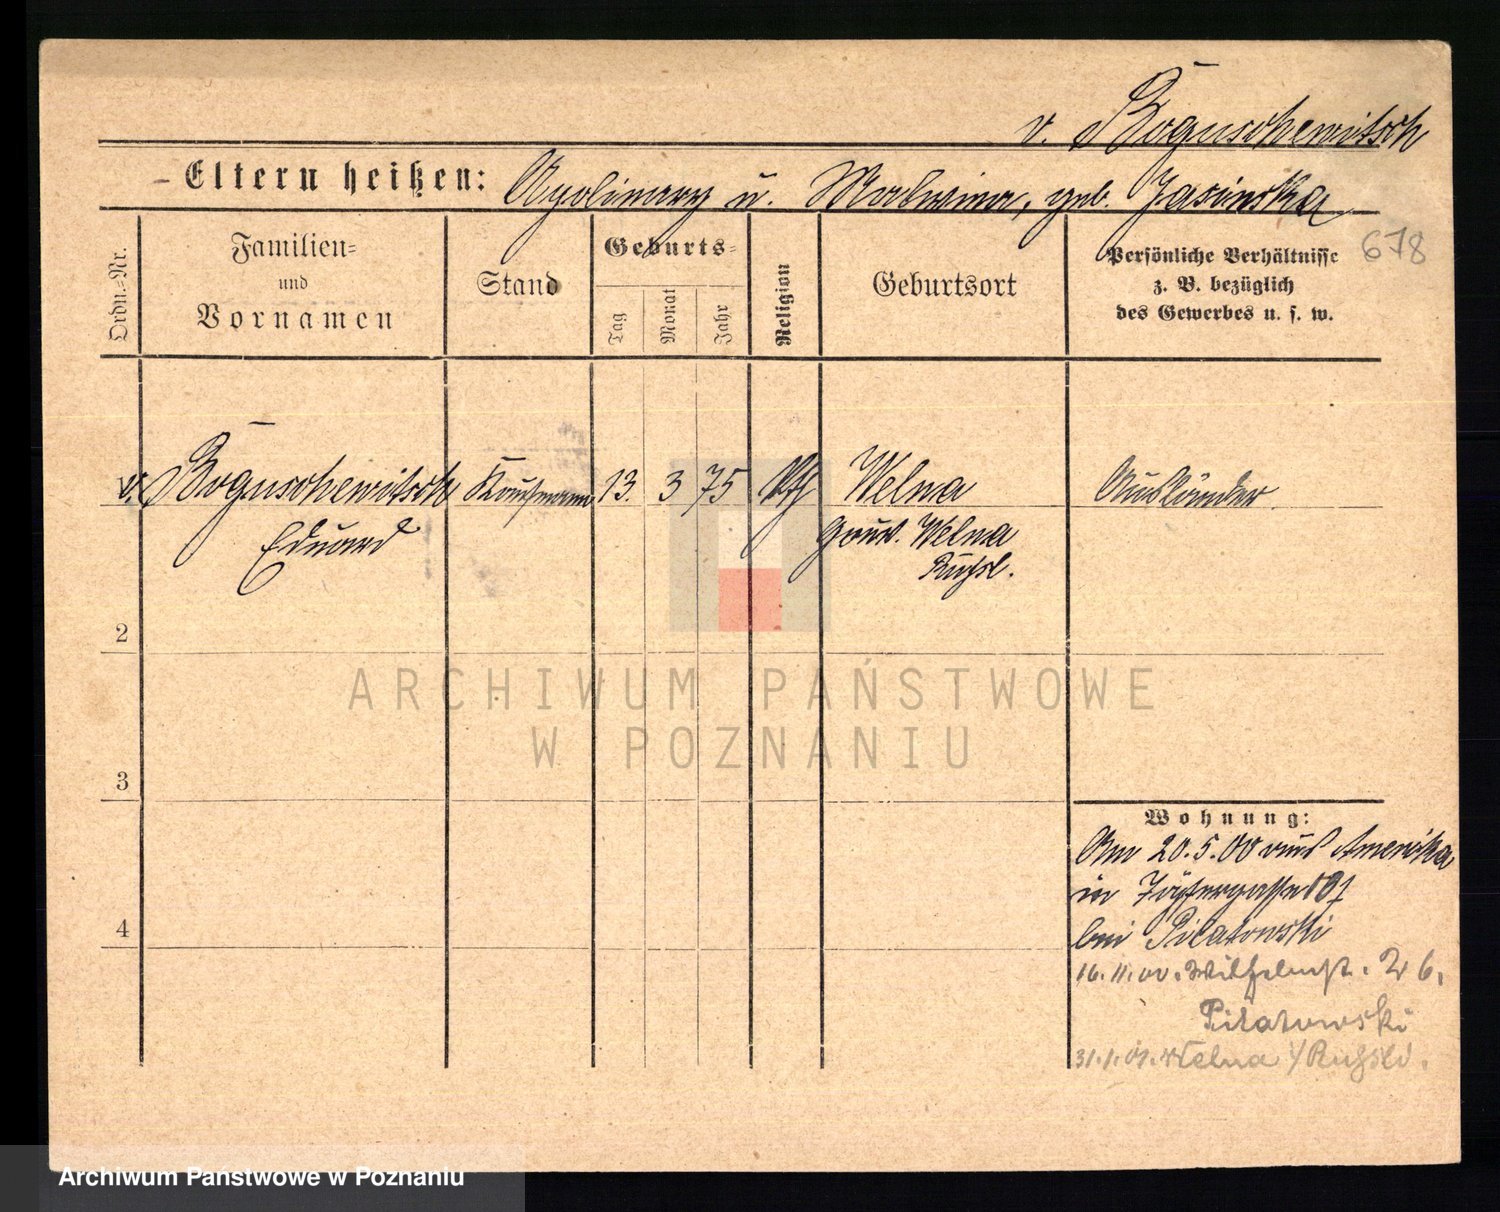 v. Boguschewitsch
Eltern heißen: Apolinary u. Malwina, geb. Jasinska
678
Ordn.-Nr.
Familien-
und
Vornamen
Stand
Geburts-
Tag
Monat
Jahr
Religion
Geburtsort
Persönliche Verhältnisse
z. B. bezüglich
des Gewerbes u. s. w.
v. Boguschewitsch Kaufmann 13. 3 75 Welna Ausländer
Eduard
Gouv. Welna
Rußl.
2
3
4
ARCHIWUM PAŃSTWOWE
W POZNANIU
Wohnung:
Am 20.5.00 aus Amerika
in
bei Pilatowski
16.11.00. Wilhelmst. 26.
Pilatowski
31.1.01. Welna /Rußld.
Archiwum Państwowe w Poznaniu